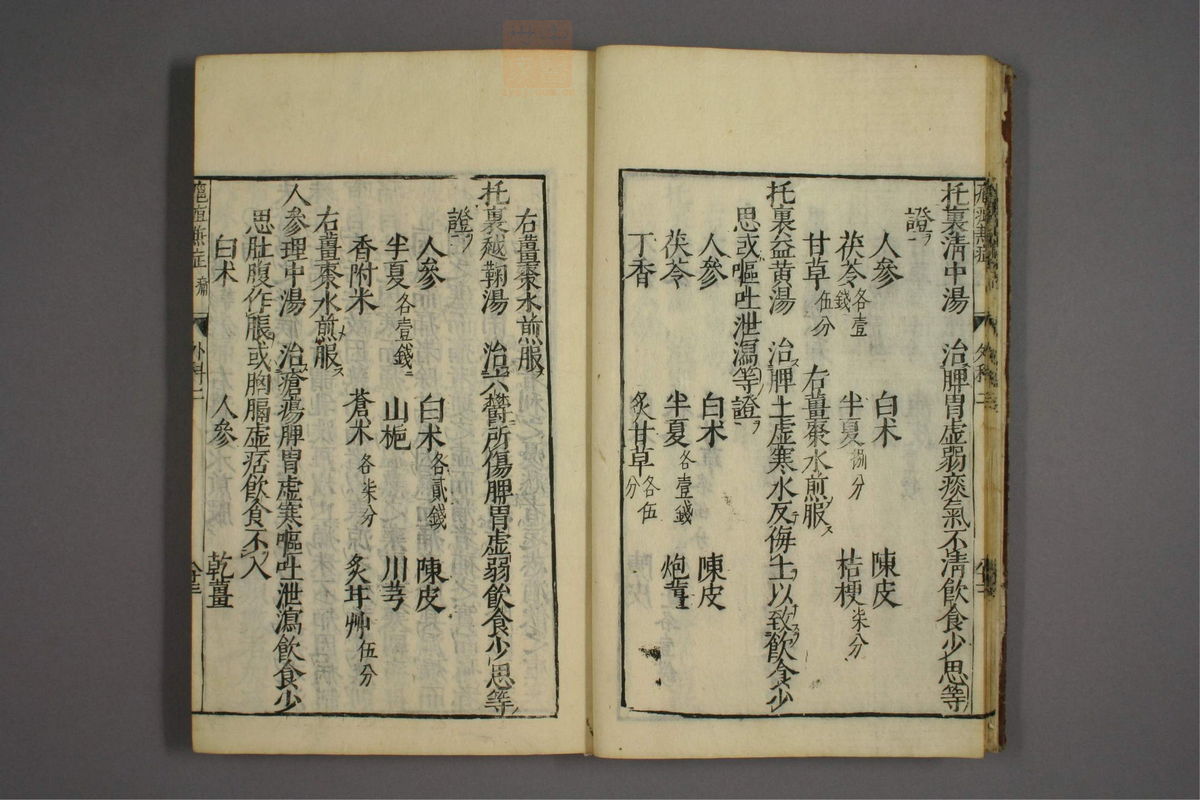 托裏清中湯　治脾胃虛弱痰氣不清飲食少思等
證ヲ
人參　白术　陳皮
茯苓各壹錢　半夏捌分　桔梗柒分
甘草伍分　右薑棗水煎服ス
托裏益黃湯　治脾土虛寒水反侮土以致飲食少
思或嘔吐泄瀉等證ヲ
人參　白术　陳皮
茯苓　半夏各壹錢　炮薑
丁香　炙甘草各伍分
右薑棗水煎服
托裏越鞠湯　治六鬱所傷脾胃虛弱飲食少思等
證ヲ
人參　白术各貳錢　陳皮
半夏各壹錢　山梔　川芎
香附米　蒼术各柒分　炙甘艸伍分
右薑棗水煎服ス
人參理中湯　治瘡瘍脾胃虛寒嘔吐泄瀉飲食少
思肚腹作脹或胸膈虛痞飲食不入
白术　人參　乾薑
外科二